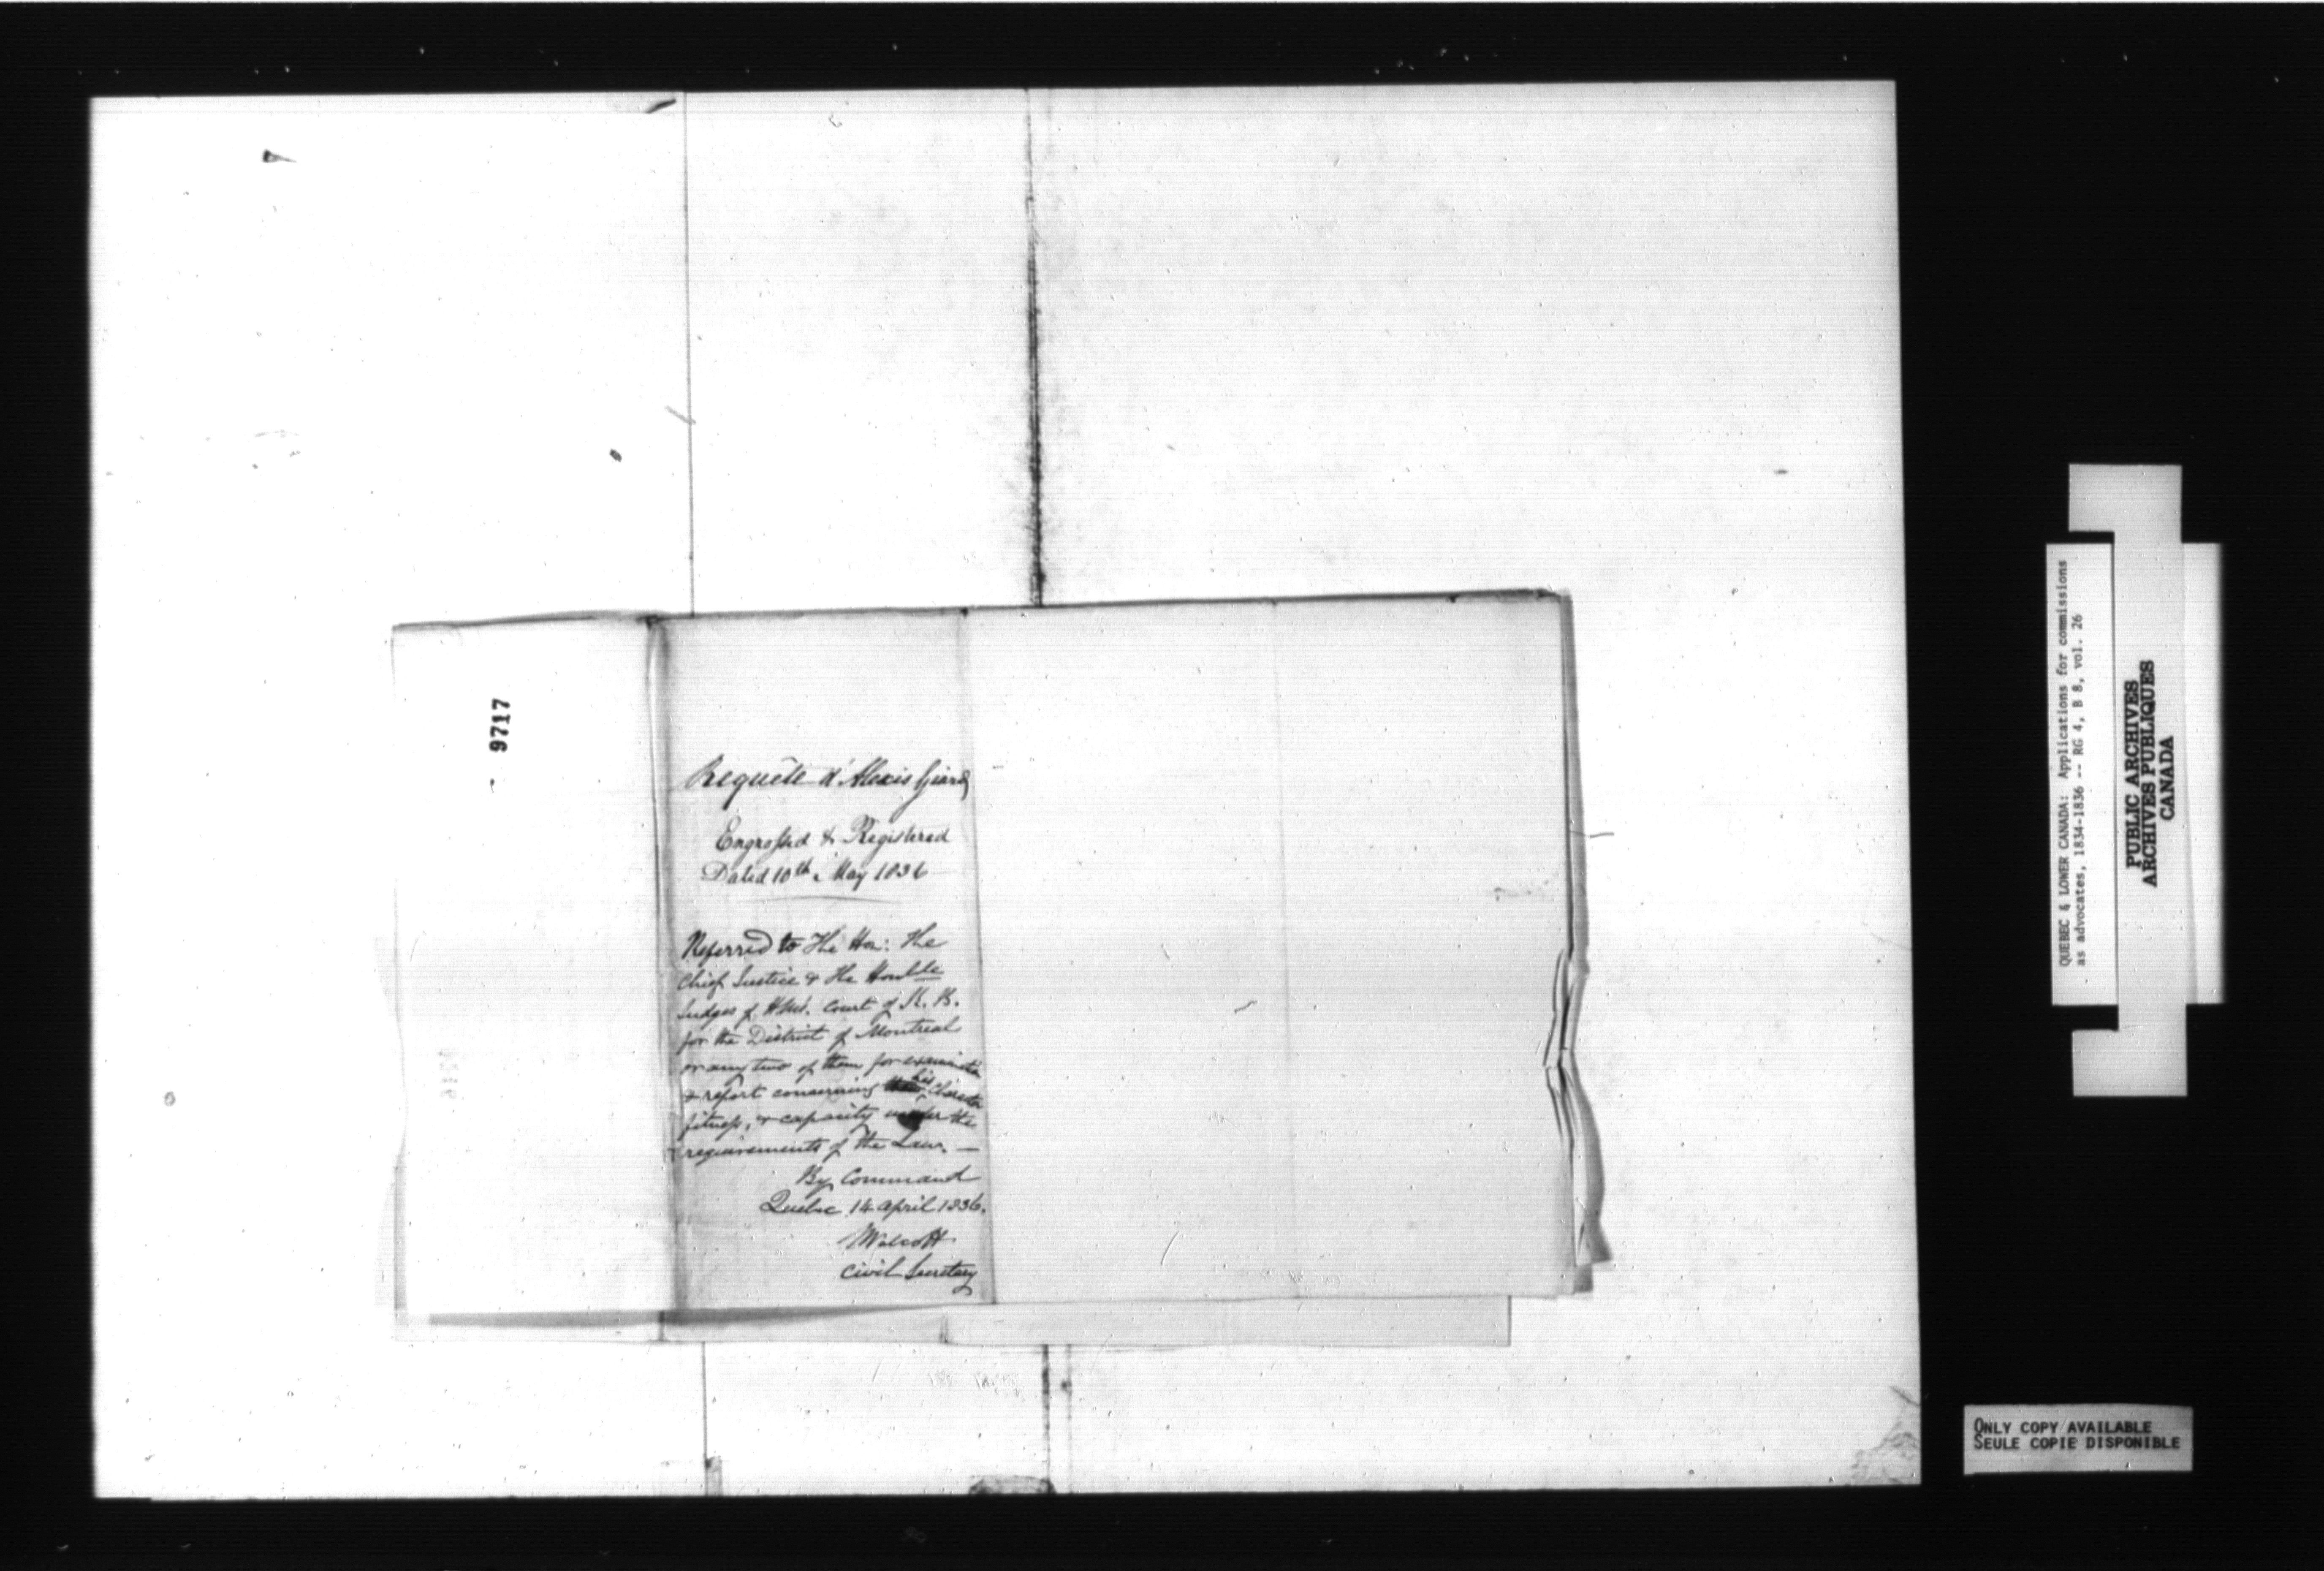 9717
Requête d'Alexis Girard
Engrossed & Registered
Dated 10th May 1836
Referred to The Hon: the
Chief Justice & the Honble
Judges of H. M. Court of K. B.
for the District of Montreal
or any two of them for examination
& report concerning his Character
fitness, & capacity under the
requirements of the Law. —
By Command
Quebec 14 April 1836.
Walcott
Civil Secretary
QUEBEC & LOWER CANADA: Applications for commissions
as advocates, 1834-1836 -- RG 4, B 8, vol. 26
PUBLIC ARCHIVES
ARCHIVES PUBLIQUES
CANADA
ONLY COPY AVAILABLE
SEULE COPIE DISPONIBLE